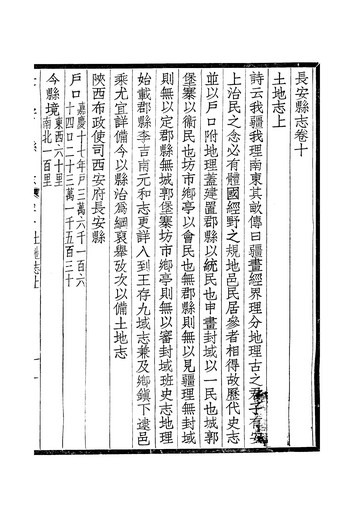 長安縣志卷十
土地志上
詩云我疆我理南東其畝傳曰疆畫經界理分地理古之君子有安
上治民之念必有體國經野之規地邑民居參者相得故歷代史志
並以戶口附地理蓋建置郡縣以統民也申畫封域以一民也城郭
堡寨以衞民也坊市鄉亭以會民也無郡縣則無以見疆理無封域
則無以定郡縣無城郭堡寨坊市鄉亭則無以審封域班史志地理
始載郡縣李吉甫元和志更詳入到王存九域志兼及鄉鎮下逮邑
乘尤宜詳備今以縣治為綱裒舉攷次以備土地志
陝西布政使司西安府長安縣
戶口嘉慶十七年戶三萬六千一百六
十四口二十三萬一千五百三十
今縣境東西六十里
南北一百里